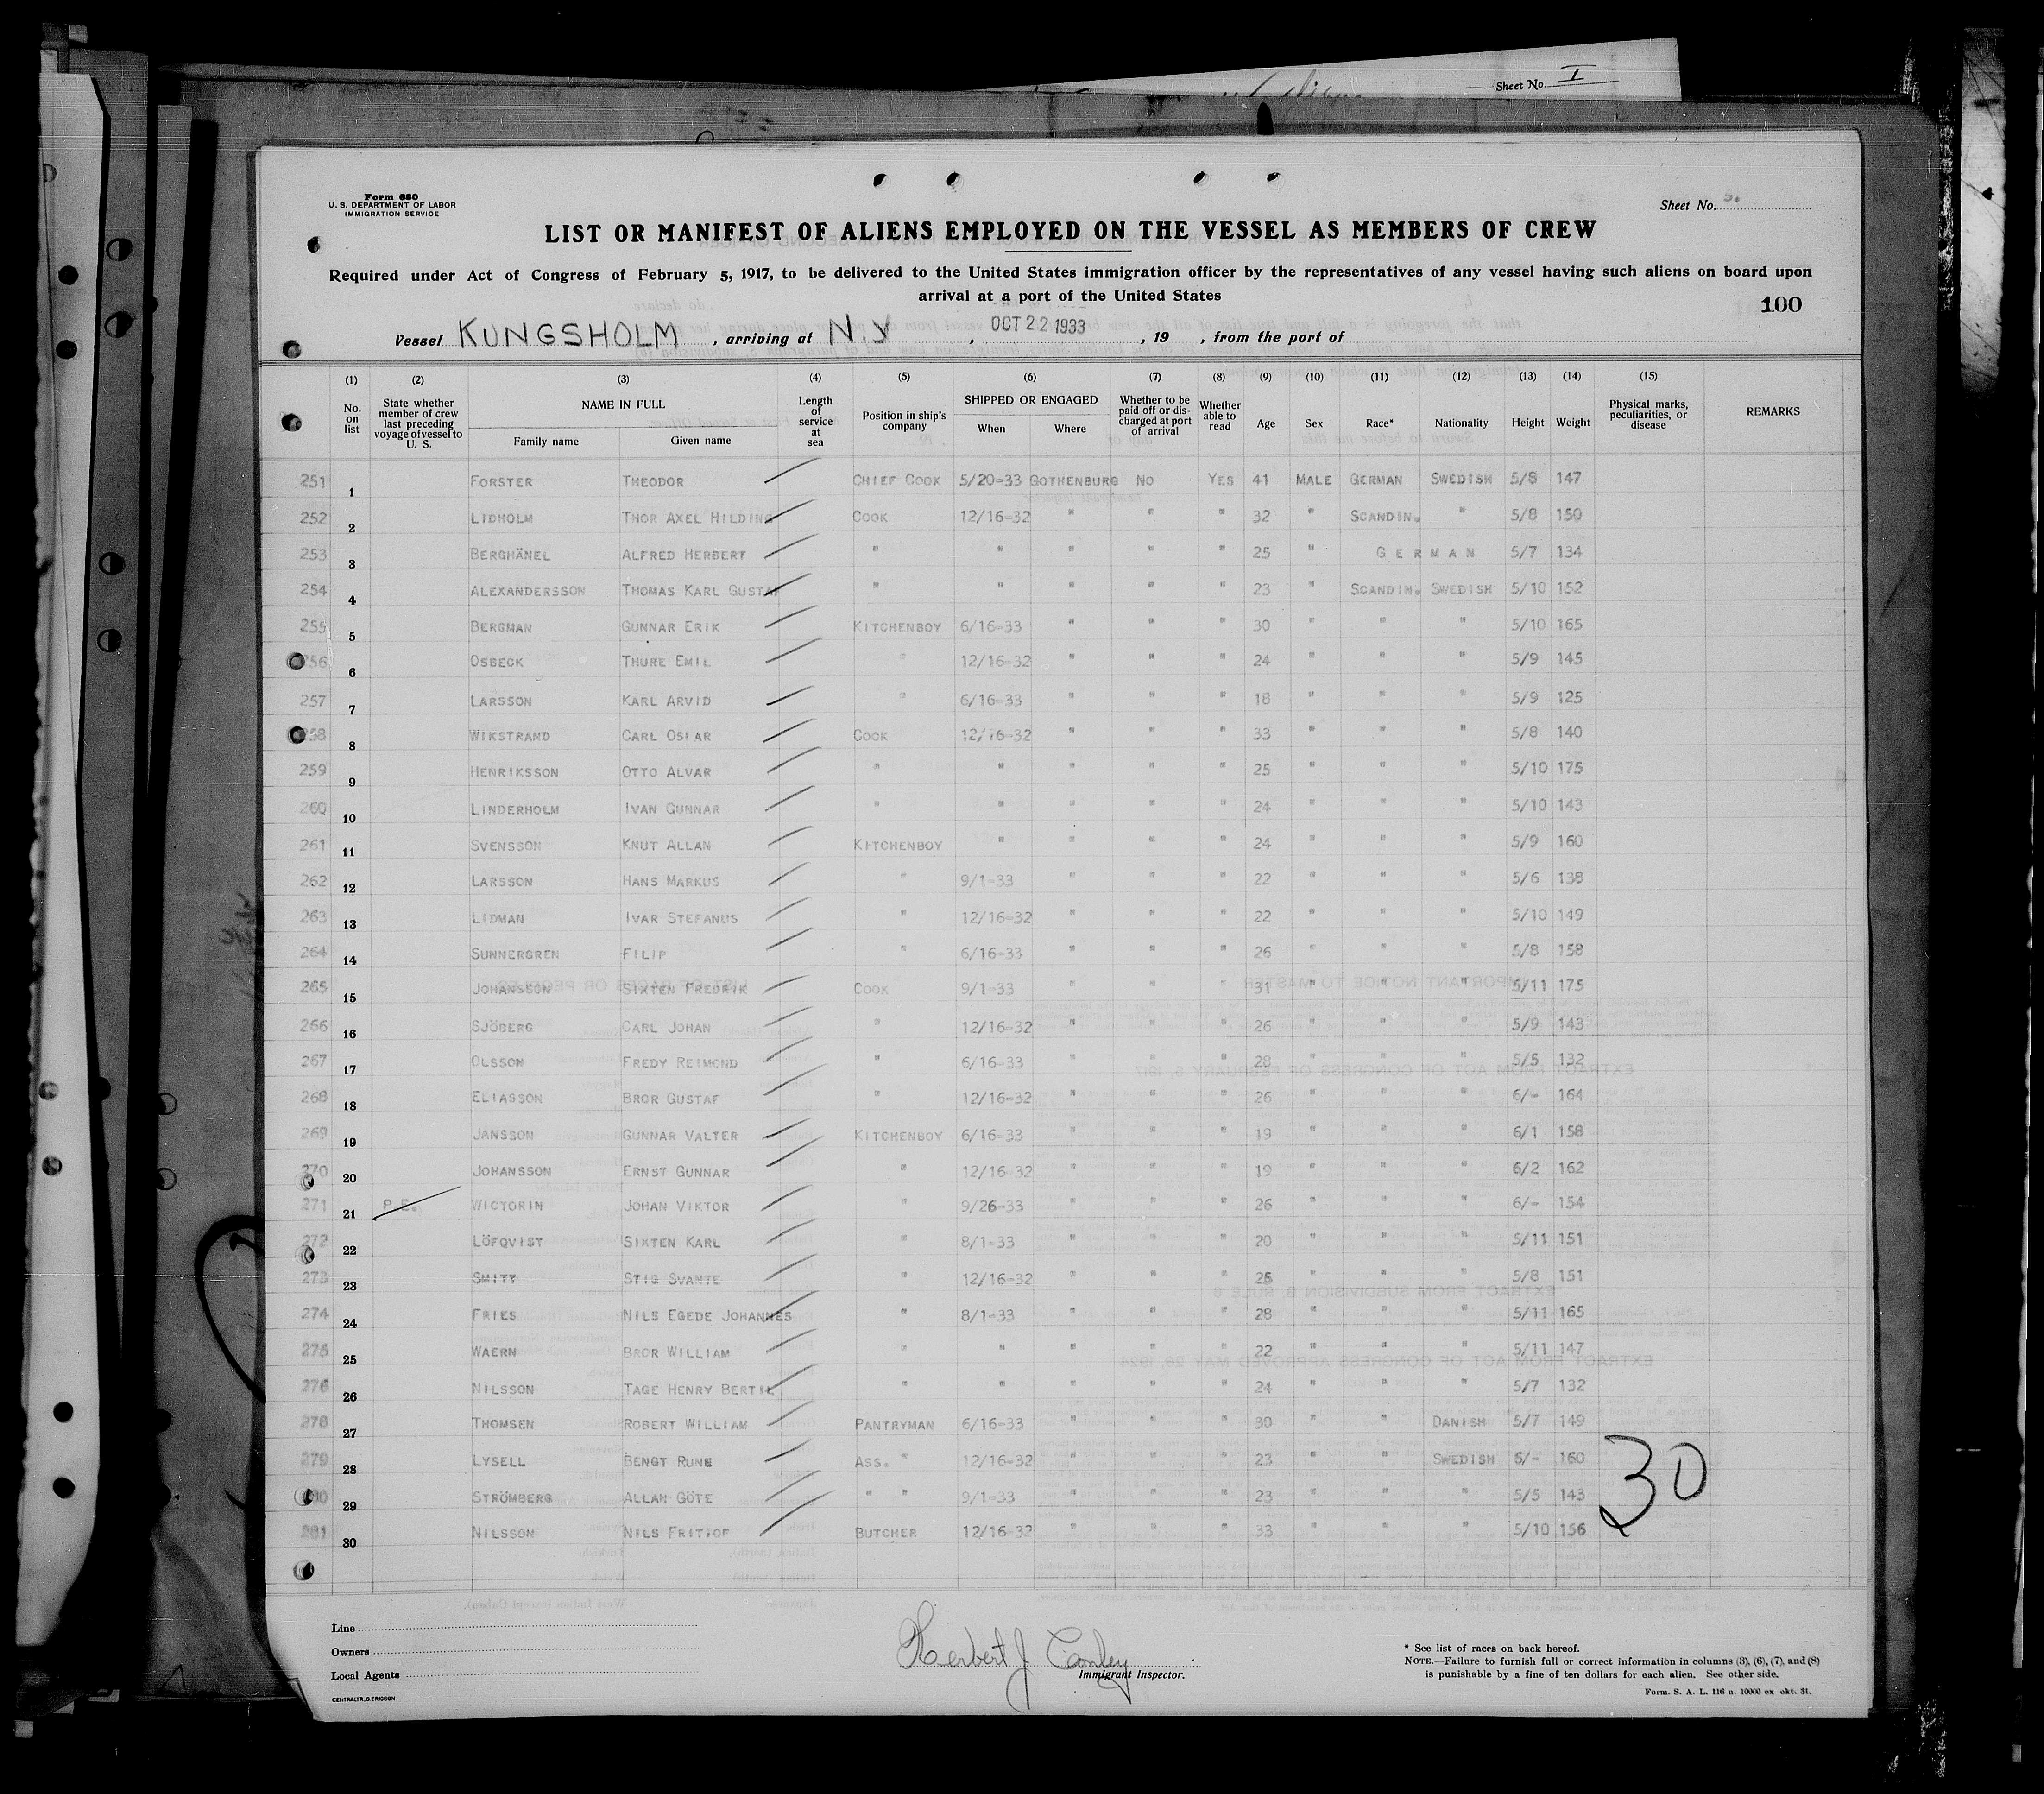 Sheet No. I
Form 680
U. S. DEPARTMENT OF LABOR
IMMIGRATION SERVICE
Sheet No.
LIST OR MANIFEST OF ALIENS EMPLOYED ON THE VESSEL AS MEMBERS OF CREW
Required under Act of Congress of February 5, 1917, to be delivered to the United States immigration officer by the representatives of any vessel having such aliens on board upon
arrival at a port of the United States
100
Vessel KUNGSHOLM, arriving at N.Y, OCT 22 1933, 19 , from the port of
(1) (2) (3) (4) (5) (6) (7) (8) (9) (10) (11) (12) (13) (14) (15)
No. on list | State whether member of crew last preceding voyage of vessel to U. S. | NAME IN FULL | Family name | Given name | Length of service at sea | Position in ship's company | SHIPPED OR ENGAGED | When | Where | Whether to be paid off or discharged at port of arrival | Whether able to read | Age | Sex | Race* | Nationality | Height | Weight | Physical marks, peculiarities, or disease | REMARKS
251 1 FORSTER THEODOR CHIEF COOK 5/20-33 GOTHENBURG NO YES 41 MALE GERMAN SWEDISH 5/8 147
252 2 LIDHOLM THOR AXEL HILDING COOK 12/16-32 " " " 32 " SCANDIN. " 5/8 150
253 3 BERGHÄNEL ALFRED HERBERT " " " " " 25 " GERMAN 5/7 134
254 4 ALEXANDERSSON THOMAS KARL GUSTAF " " " " " 23 " SCANDIN. SWEDISH 5/10 152
255 5 BERGMAN GUNNAR ERIK KITCHENBOY 6/16-33 " " " 30 " " " 5/10 165
256 6 OSBECK THURE EMIL " 12/16-32 " " " 24 " " " 5/9 145
257 7 LARSSON KARL ARVID " 6/16-33 " " " 18 " " " 5/9 125
258 8 WIKSTRAND CARL OSKAR COOK 12/16-32 " " " 33 " " " 5/8 140
259 9 HENRIKSSON OTTO ALVAR " " " " " 25 " " " 5/10 175
260 10 LINDERHOLM IVAN GUNNAR " " " " " 24 " " " 5/10 143
261 11 SVENSSON KNUT ALLAN KITCHENBOY " " " " 24 " " " 5/9 160
262 12 LARSSON HANS MARKUS " 9/1-33 " " " 22 " " " 5/6 138
263 13 LIDMAN IVAR STEFANUS " 12/16-32 " " " 22 " " " 5/10 149
264 14 SUNNERGREN FILIP " 6/16-33 " " " 26 " " " 5/8 158
265 15 JOHANSSON SIXTEN FREDRIK COOK 9/1-33 " " " 31 " " " 5/11 175
266 16 SJÖBERG CARL JOHAN " 12/16-32 " " " 26 " " " 5/9 143
267 17 OLSSON FREDY REIMOND " 6/16-33 " " " 28 " " " 5/5 132
268 18 ELIASSON BROR GUSTAF " 12/16-32 " " " 26 " " " 6/- 164
269 19 JANSSON GUNNAR VALTER KITCHENBOY 6/16-33 " " " 19 " " " 6/1 158
270 20 JOHANSSON ERNST GUNNAR " 12/16-32 " " " 19 " " " 6/2 162
271 21 P.E. WICTORIN JOHAN VIKTOR " 9/26-33 " " " 26 " " " 6/- 154
272 22 LÖFQVIST SIXTEN KARL " 8/1-33 " " " 20 " " " 5/11 151
273 23 SMITT STIG SVANTE " 12/16-32 " " " 25 " " " 5/8 151
274 24 FRIES NILS EGEDE JOHANNES " 8/1-33 " " " 28 " " " 5/11 165
275 25 WAERN BROR WILLIAM " " " " " 22 " " " 5/11 147
276 26 NILSSON TAGE HENRY BERTIL " " " " " 24 " " " 5/7 132
278 27 THOMSEN ROBERT WILLIAM PANTRYMAN 6/16-33 " " " 30 " " DANISH 5/7 149
279 28 LYSELL BENGT RUNE ASS. " 12/16-32 " " " 23 " " SWEDISH 6/- 160
280 29 STRÖMBERG ALLAN GÖTE " " 9/1-33 " " " 23 " " " 5/5 143
281 30 NILSSON NILS FRITIOF BUTCHER 12/16-32 " " " 33 " " " 5/10 156
30
Line
Owners
Local Agents
CENTRALTR. G. ERICSON
Herbert J Conley
Immigrant Inspector.
* See list of races on back hereof.
NOTE.—Failure to furnish full or correct information in columns (3), (6), (7), and (8)
is punishable by a fine of ten dollars for each alien. See other side.
Form. S. A. L. 116 n. 10000 ex okt. 31.